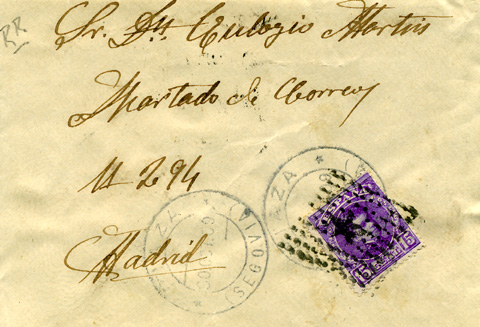 RR
Sr. Dn Eulogio Martin
Apartado de Correos
N 294
Madrid
ZA * (SEGOVIA) *
ZA *
ESPAÑA
15 15